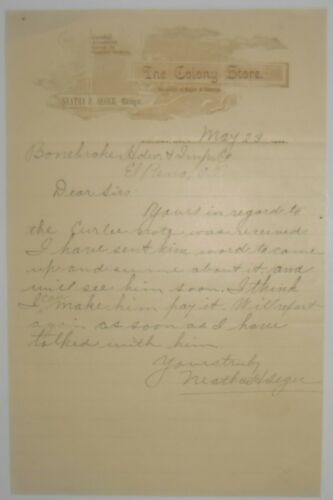 The Colony Store.
NEATHA H. SEGER, Manager.
May 23
Bonebroke Hdw. & Imp Co
El Reno, O.T.
Dear Sirs:
Yours in regard to
the Curlee note was received
I have sent him word to come
up and see me about it, and
will see him soon. I think
I can make him pay it. Will report
again as soon as I have
talked with him
Yours truly
Neatha H Seger